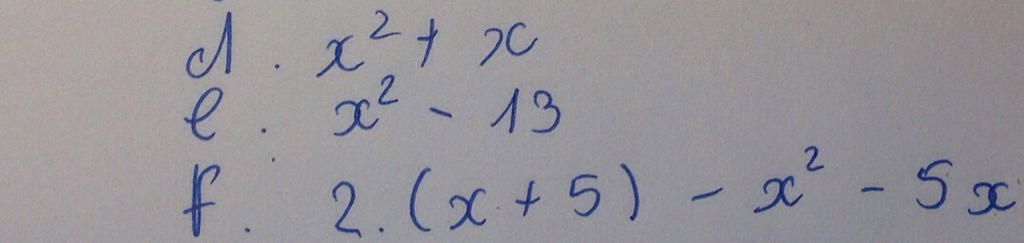 d. x² + x
e. x² - 13
f. 2.(x + 5) - x² - 5x